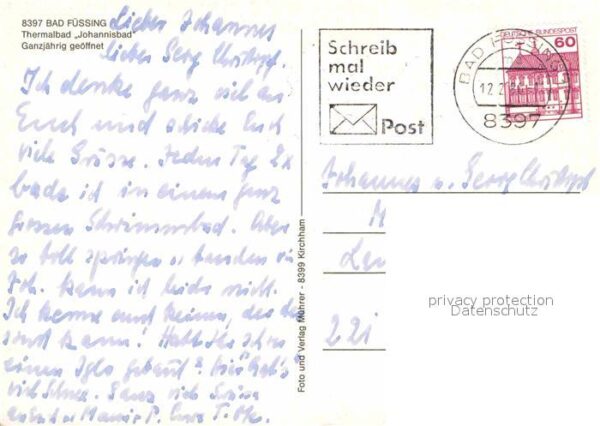 8397 BAD FÜSSING
Thermalbad „Johannisbad"
Ganzjährig geöffnet
Lieber Johannes
Lieber Georg Christoph.
Ich denke ganz viel an
Euch und schicke Euch
viele Grüsse. Jeden Tag 2x
bade ich in einem ganz
grossen Schwimmbad. Aber
so toll springen u tauchen wie
Ihr kann ich leider nicht.
Ich kenne auch keinen, der das
sonst kann! Habt Ihr schon
einen Iglo gebaut? hier
viel Schnee. Ganz viele Grüsse
Foto und Verlag Muhrer - 8399 Kirchham
Schreib
mal
wieder
Post
DEUTSCHE BUNDESPOST
60
BAD FÜSSING
12.2
8397
Johannes u. Georg Christoph
221
privacy protection
Datenschutz